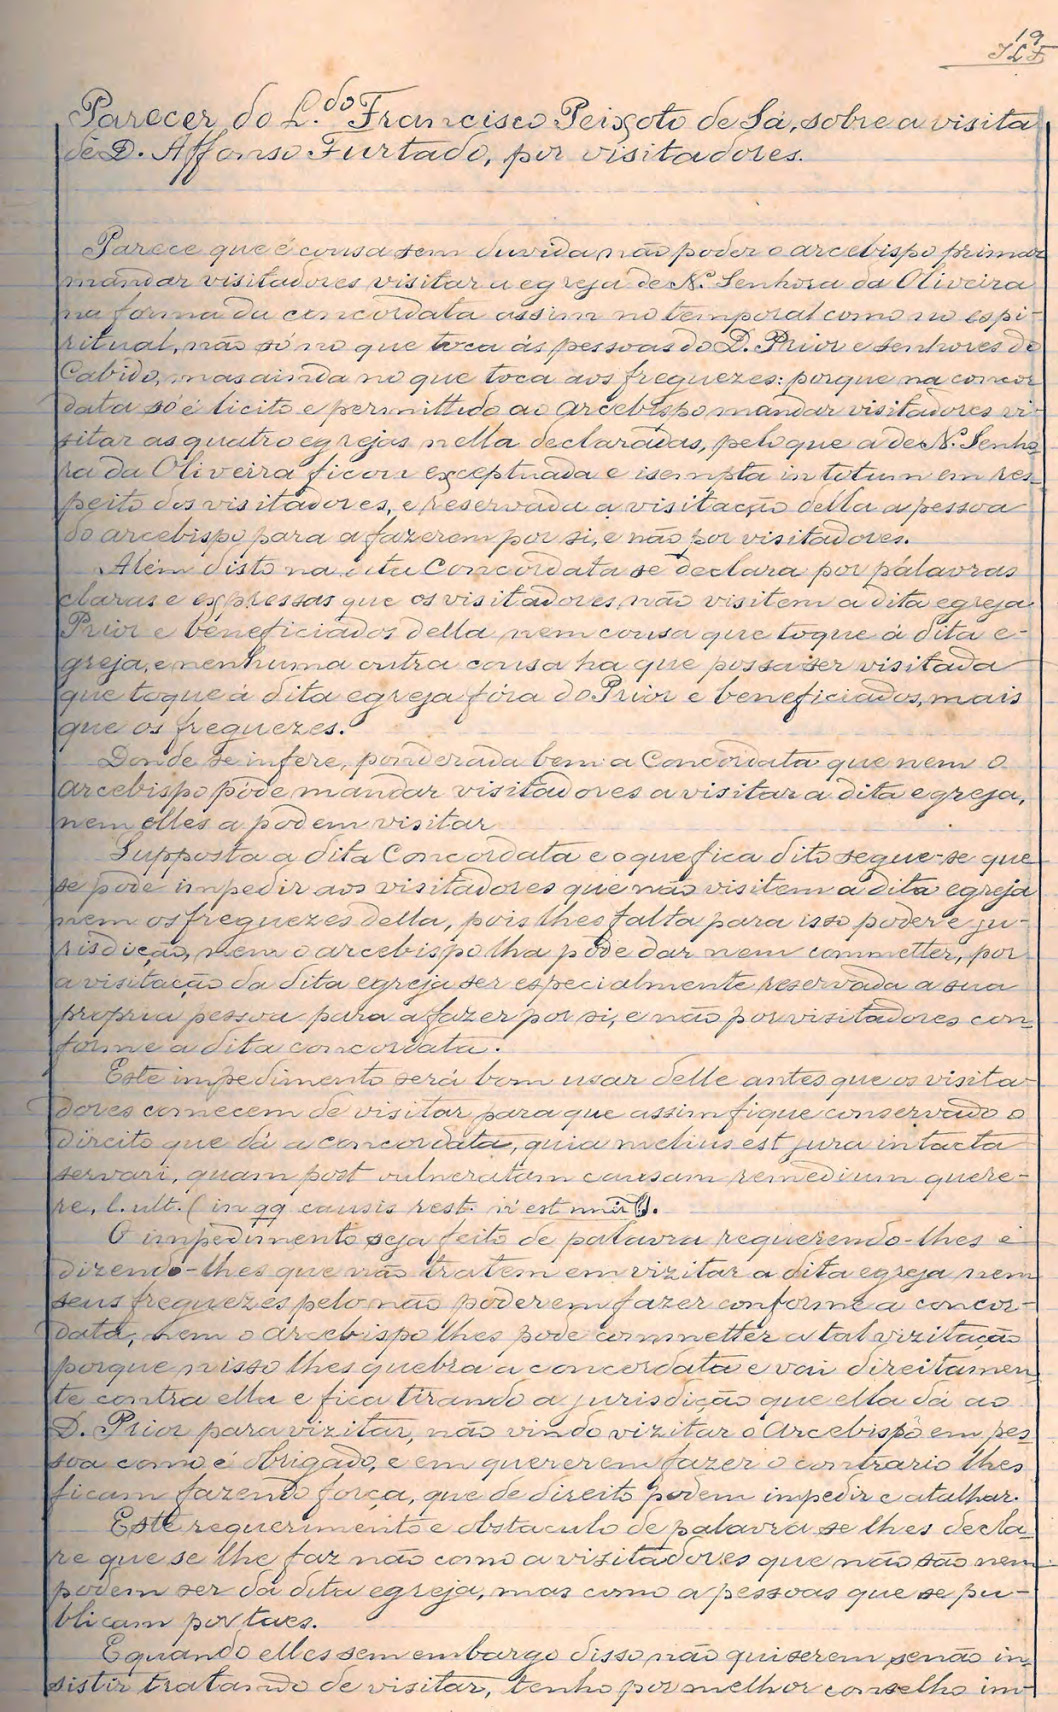 19
JLF
Parecer do L.do Francisco Peixoto de Sá, sobre a visita
de D. Affonso Furtado, por visitadores.
Parece que é cousa sem duvida, não poder o arcebispo primaz
mandar visitadores visitar a egreja de N.ª Senhora da Oliveira
na forma da concordata assim no temporal como no espi-
ritual, não só no que toca ás pessoas do D. Prior e senhores do
Cabido, mas ainda no que toca aos freguezes: porque na concor
data só é licito e permittido ao Arcebispo mandar visitadores vi-
sitar as quatro egrejas nella declaradas, pelo que a de N.ª Senho
ra da Oliveira ficou exceptuada e isempta in totum em res-
peito dos visitadores, e reservada a visitação della a pessoa
do arcebispo para a fazerem por si, e não por visitadores.
Alem disto na dita Concordata se declara por pálavras
claras e expressas que os visitadores, não visitem a dita egreja
Prior e beneficiados della, nem cousa que toque á dita e-
greja, e nenhuma outra cousa ha que possa ser visitada
que toque á dita egreja fóra do Prior e beneficiados, mais
que os freguezes.
Donde se infere, ponderada bem a Concordata que nem o
Arcebispo póde mandar visitadores a visitar a dita egreja,
nem elles a podem visitar
Supposta a dita Concordata e o que fica dito segue-se que
se póde impedir aos visitadores que não visitem a dita egreja
nem os freguezes della, pois lhes falta para isso poder e ju-
risdição, nem o arcebispo lha póde dar nem commetter, por
a visitação da dita egreja ser especialmente reservada a sua
propria pessoa para a fazer por si, e não por visitadores con-
forme a dita concordata.
Este impedimento será bom usar delle antes que os visita-
dores comecem de visitar para que assim fique conservado o
direito que dá a concordata, quia melius est jura intacta
servari, quam post vulneratam causam remedium quere-
re, l. ult. ( in qq causis rest. ñ est
O impedimento seja feito de palavra requerendo-lhes e
dizendo-lhes que não tratem em vizitar a dita egreja nem
seus freguezes pelo não poderem fazer conforme a concor-
data, nem o arcebispo lhes póde commetter a tal vizitação
porque nisso lhes quebra a concordata e vai direitamen
te contra ella e fica tirando a jurisdição que ella dá ao
D. Prior para vizitar, não vindo vizitar o Arcebispo em pes-
soa como é obrigado, e em quererem fazer o contrario lhes
ficam fazendo força, que de direito podem impedir e atalhar.
Este requerimento e obstaculo de palavra se lhes decla-
re que se lhe faz não como a visitadores que não são nem
podem ser da dita egreja, mas como a pessoas que se pu-
blicam por taes.
E quando elles sem embargo disso, não quiserem senão in-
sistir tratando de visitar, tenho por melhor conselho im-